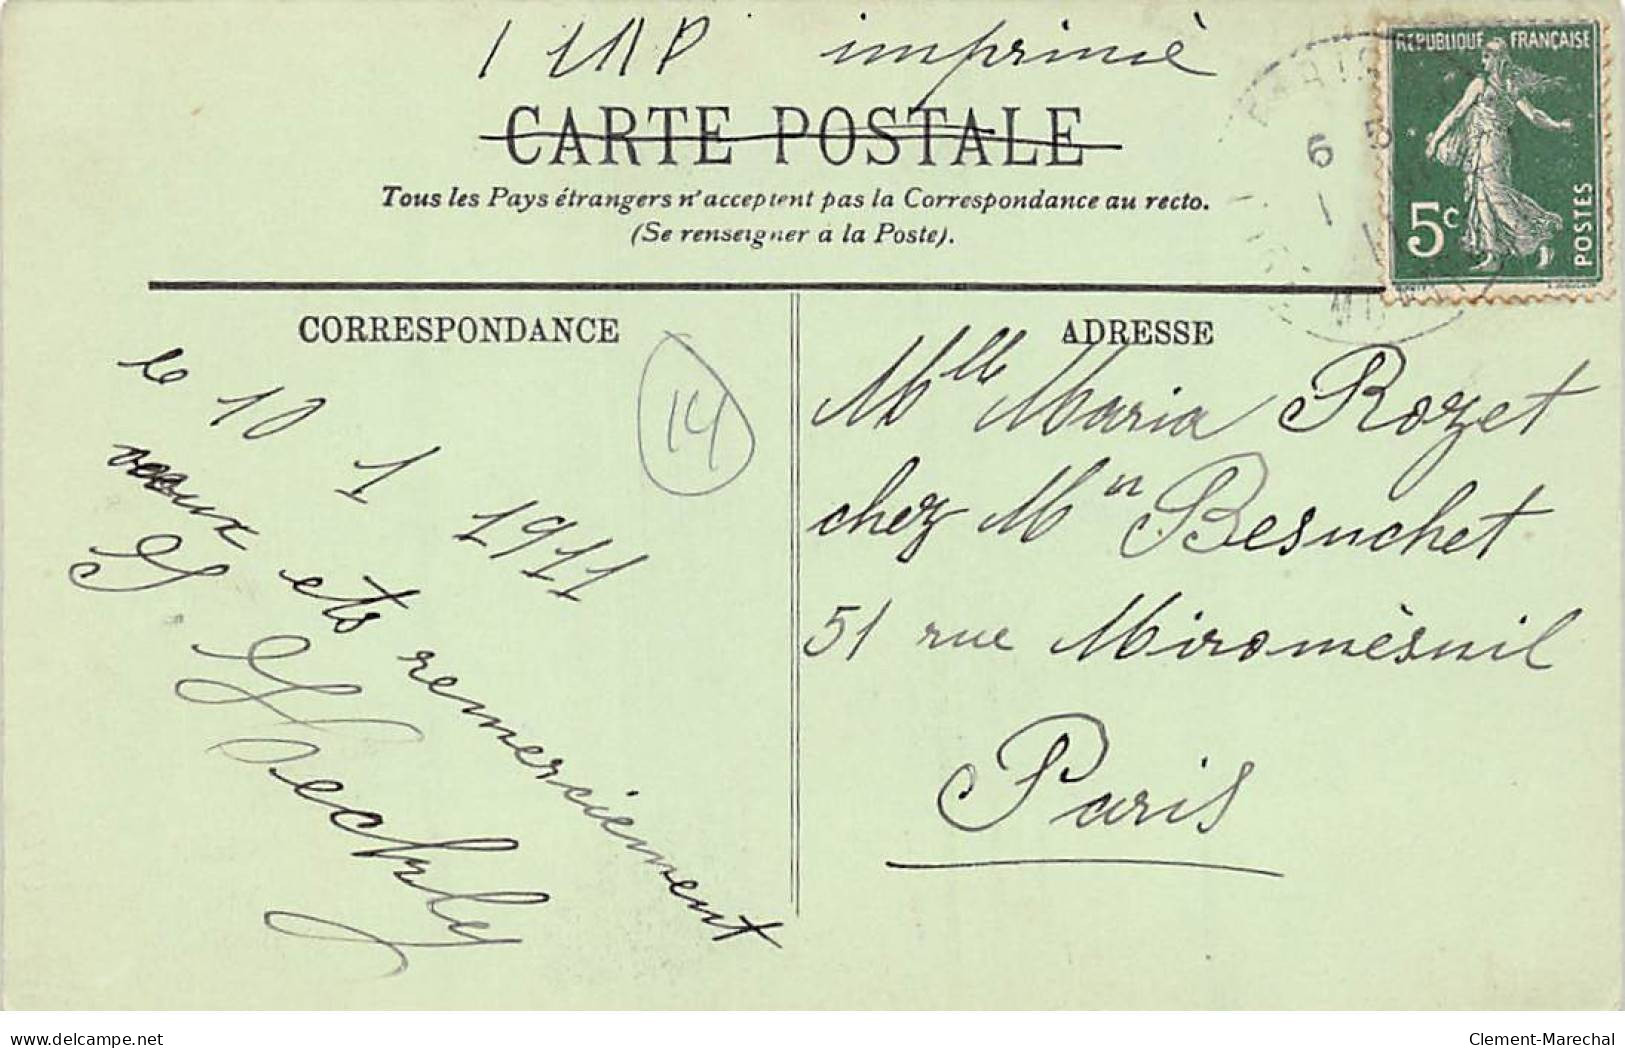 imprimé
CARTE POSTALE
Tous les Pays étrangers n'acceptent pas la Correspondance au recto.
(Se renseigner à la Poste).
REPUBLIQUE FRANÇAISE
5c
POSTES
6
CORRESPONDANCE
le 10 1 1911
vœux ets remerciement
14
ADRESSE
Mlle Maria Rozet
chez Mr Besuchet
51 rue Miromèsnil
Paris
delcampe.net
Clement-Marechal